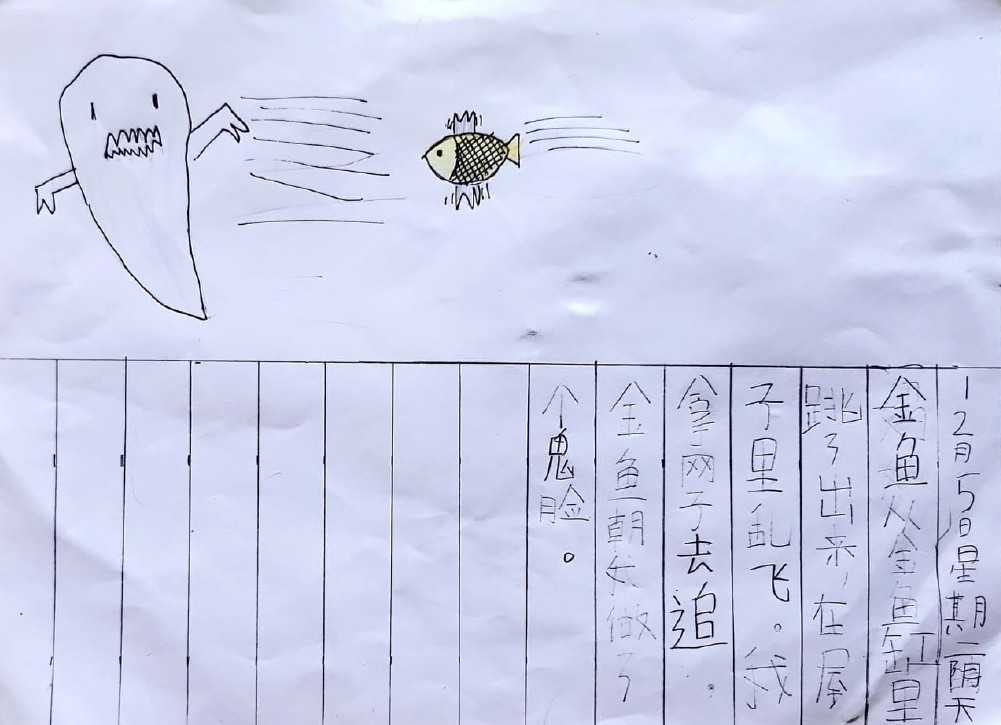 12月5日星期二阴天
金鱼从金鱼缸里
跳了出来，在屋
子里乱飞。我
拿网子去追。
金鱼朝我做了
个鬼脸。